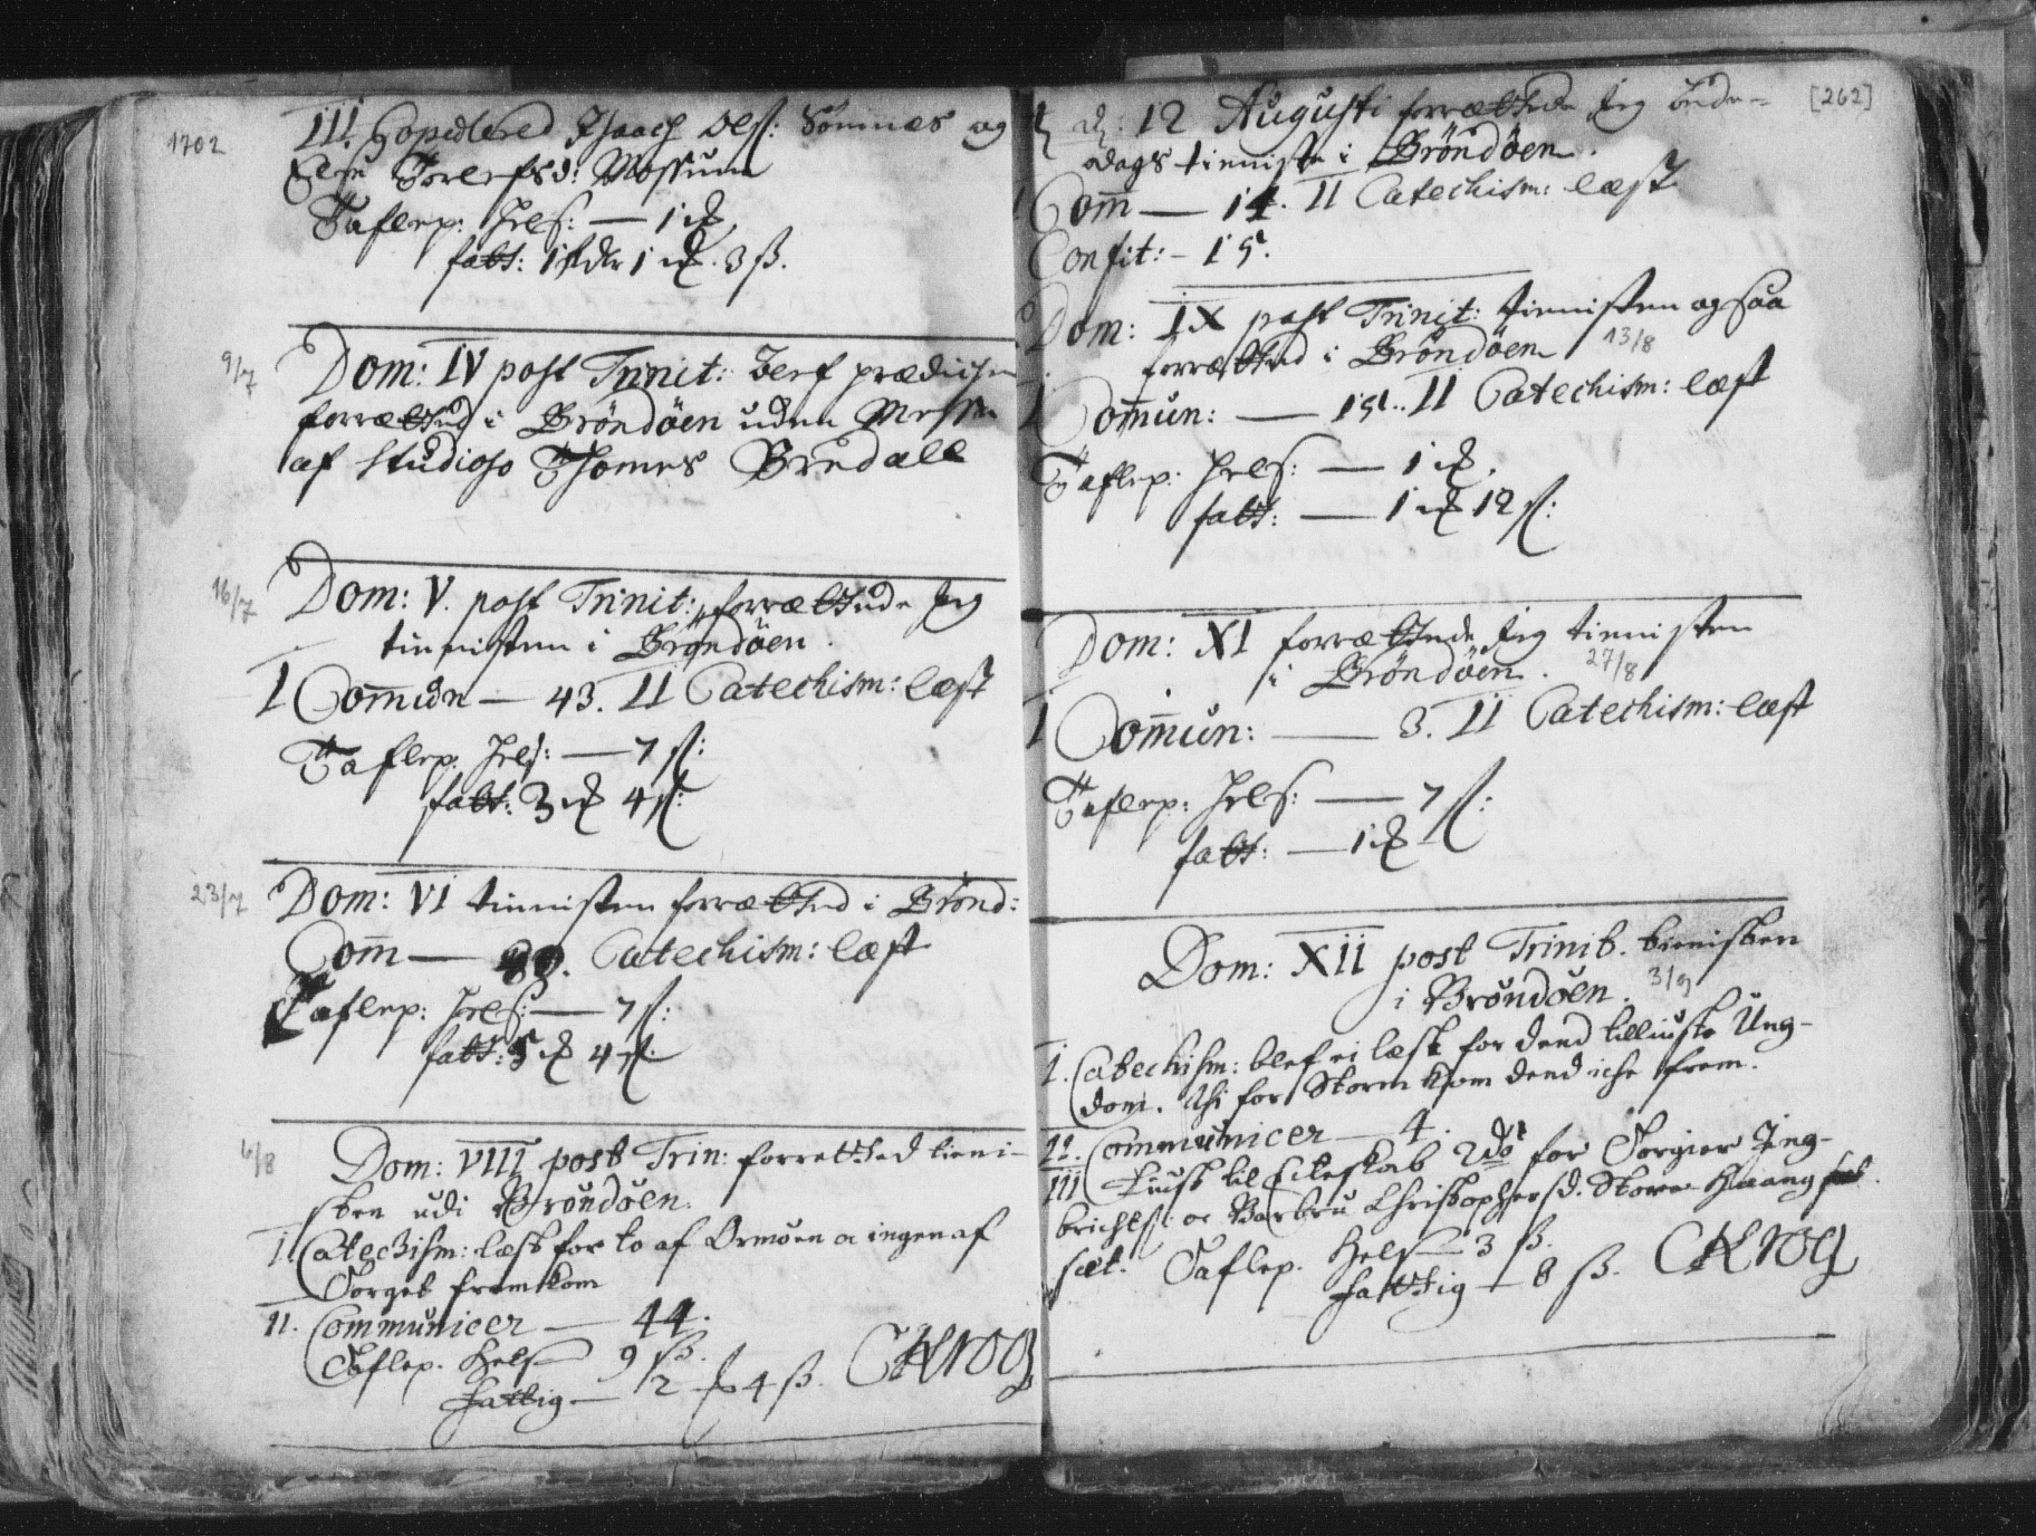 1702
III. Copulered Isaach Ols: Sömnes og
Torlefsd: Mossum
Taflep: Hels: — 1
fatt: 1 1 3 ß.
9/7
Dom: IV post Trinit:
forrættid i Bröndöen uden Messe
af Studioso Thomes Bredall
16/7
Dom: V. post Trinit: forrættede Jeg
tienisten i Bröndöen.
I Com̄un — 43. II Catechism: læst
Taflep. Hels: — 7 ß:
fatt: 3 4 ß:
23/7
Dom: VI tienisten forrætted i Brönd:
Com̄ — Catechism: læst
Taflep: Hels: — 7 ß:
fatt: 5 4 ß:
6/8
Dom: VIII post Trin: forretted tieni-
sten udi Bröndöen.
I. Catechism: læst for to af Ormöen oc ingen af
Torget fremkom
II. Communicer — 44.
Taflep. Hels 9 ß.
Fattig — 2 4 ß. CKrog
[262]
d: 12 Augusti forrættede Jeg
dags tieniste i Bröndöen.
Com̄ — 14. II Catechism: læst
Confit: – 15.
Dom: IX post Trinit: tienisten ogsaa
forrætted i Bröndöen 13/8
I Com̄un: — 15. II Catechism: læst
Taflep: Hels: — 1
fatt: — 1 12 ß:
Dom: XI forrættede Jeg tienisten
i Bröndöen. 27/8
I Com̄un: — 3. II Catechism: læst
Taflep: Hels: — 7 ß:
fatt: — 1
Dom: XII post Trinit. tienisten
i Bröndöen. 3/9
I. Catechism: blef ei læst for dend tilliuste Ung-
dom. Thi for Storm kom dend iche frem.
II. Communicer — 4.
III Liust til Ecteskab 2do for Torgier Ing-
brichts: oc Barbru Christophersd. Store
sæt. Taflep. Hels 3 ß.
Fattig — 8 ß. CKrog